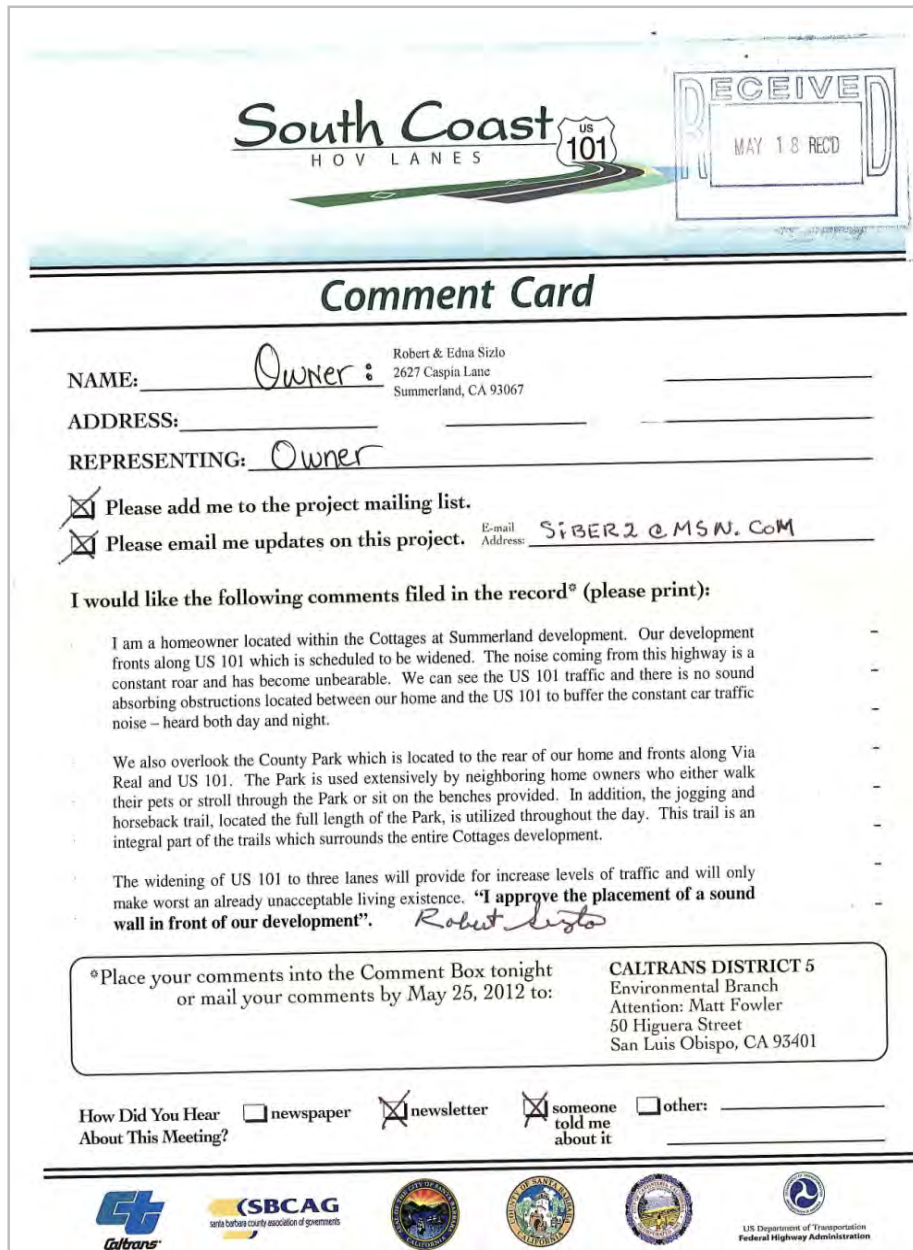 South Coast
HOV LANES
US
101
RECEIVED
MAY 18 REC'D
Comment Card
NAME: Owner :
Robert & Edna Sizlo
2627 Caspia Lane
Summerland, CA 93067
ADDRESS:
REPRESENTING: Owner
Please add me to the project mailing list.
Please email me updates on this project. E-mail Address: SiBER2@MSN.COM
I would like the following comments filed in the record* (please print):
I am a homeowner located within the Cottages at Summerland development. Our development
fronts along US 101 which is scheduled to be widened. The noise coming from this highway is a
constant roar and has become unbearable. We can see the US 101 traffic and there is no sound
absorbing obstructions located between our home and the US 101 to buffer the constant car traffic
noise – heard both day and night.
We also overlook the County Park which is located to the rear of our home and fronts along Via
Real and US 101. The Park is used extensively by neighboring home owners who either walk
their pets or stroll through the Park or sit on the benches provided. In addition, the jogging and
horseback trail, located the full length of the Park, is utilized throughout the day. This trail is an
integral part of the trails which surrounds the entire Cottages development.
The widening of US 101 to three lanes will provide for increase levels of traffic and will only
make worst an already unacceptable living existence. “I approve the placement of a sound
wall in front of our development”. Robert Sizlo
*Place your comments into the Comment Box tonight
or mail your comments by May 25, 2012 to:
CALTRANS DISTRICT 5
Environmental Branch
Attention: Matt Fowler
50 Higuera Street
San Luis Obispo, CA 93401
How Did You Hear
About This Meeting?
newspaper
newsletter
someone
told me
about it
other:
Caltrans
SBCAG
santa barbara county association of governments
COUNTY OF SANTA BARBARA
CALIFORNIA
US Department of Transportation
Federal Highway Administration